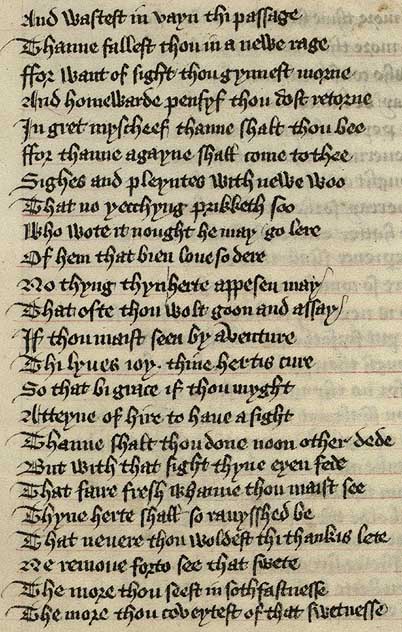 And wastest in vayn thi passage
Thanne fallest thou in a newe rage
ffor want of sight thou gynnest morne
And homewarde pensyf thou dost retorne
In gret myscheef thanne shalt thou bee
ffor thanne agayne shall come to thee
Sighes and pleyntes with newe woo
That no yecchyng prikketh soo
Who wote it nought he may go lere
Of hem that bien loue so dere
No thyng thyn herte appesen may
That ofte thou wolt goon and assay
If thou maist seen by aventure
Thi lyues ioy. thine hertis cure
So that bi grace if thou myght
Atteyne of hire to have a sight
Thanne shalt thou done noon other dede
But with that sight thyne eyen fede
That faire fresh whanne thou maist see
Thyne herte shall so rauysshed be
That nevere thou woldest thi thankis lete
Ne remoue forto see that swete
The more thou seest in sothfastnesse
The more thou coveytest of that swetnesse